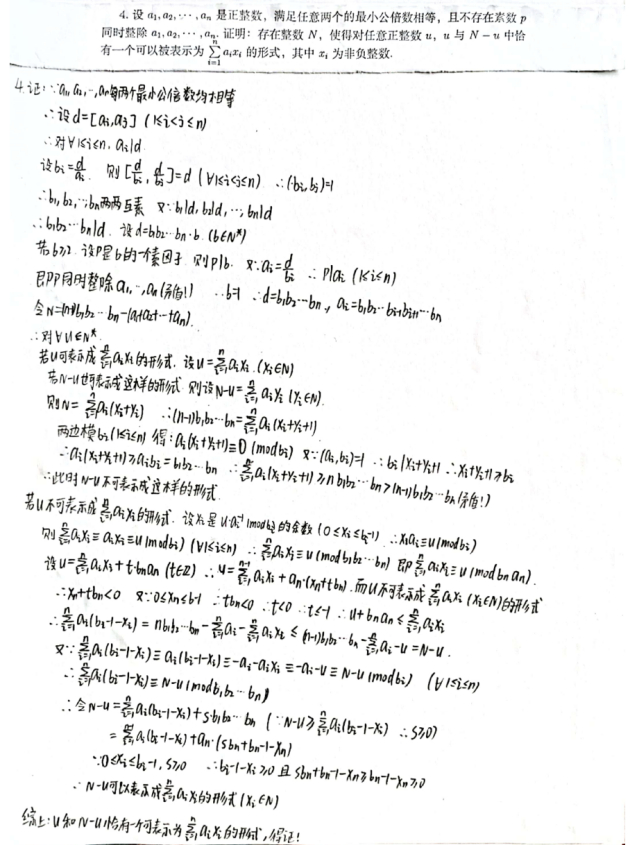 4. 设 a₁,a₂,⋯,aₙ 是正整数，满足任意两个的最小公倍数相等，且不存在素数 p
同时整除 a₁,a₂,⋯,aₙ. 证明：存在整数 N，使得对任意正整数 u，u 与 N−u 中恰
有一个可以被表示为 ∑ᵢ₌₁ⁿ aᵢxᵢ 的形式，其中 xᵢ 为非负整数.
4.证：∵a₁,a₂,⋯,aₙ每两个最小公倍数均相等
∴设d=[aᵢ,aⱼ] (1≤i<j≤n)
∴对∀1≤i≤n, aᵢ|d
设bᵢ=d/aᵢ 则[d/bᵢ, d/bⱼ]=d (∀1≤i<j≤n) ∴(bᵢ,bⱼ)=1
∴b₁,b₂,⋯,bₙ两两互素 又∵b₁|d,b₂|d,⋯,bₙ|d
∴b₁b₂⋯bₙ|d. 设d=b₁b₂⋯bₙ·b.(b∈N*)
若b≥2. 设P是b的一个素因子. 则P|b. 又∵aᵢ=d/bᵢ ∴P|aᵢ (1≤i≤n)
即P同时整除a₁,⋯,aₙ(矛盾!) ∴b=1 ∴d=b₁b₂⋯bₙ, aᵢ=b₁b₂⋯bᵢ₋₁bᵢ₊₁⋯bₙ
令N=(n-1)b₁b₂⋯bₙ-(a₁+a₂+⋯+aₙ).
∴对∀u∈N*.
若u可表示成∑ᵢ₌₁ⁿaᵢxᵢ的形式. 设u=∑ᵢ₌₁ⁿaᵢxᵢ.(xᵢ∈N)
若N-u也可表示成这样的形式. 则设N-u=∑ᵢ₌₁ⁿaᵢyᵢ (yᵢ∈N).
则N=∑ᵢ₌₁ⁿaᵢ(xᵢ+yᵢ) ∴(n-1)b₁b₂⋯bₙ=∑ᵢ₌₁ⁿaᵢ(xᵢ+yᵢ+1)
两边模bᵢ(1≤i≤n) 得:aᵢ(xᵢ+yᵢ+1)≡0 (modbᵢ) 又∵(aᵢ,bᵢ)=1 ∴bᵢ|xᵢ+yᵢ+1 ∴xᵢ+yᵢ+1≥bᵢ
∴aᵢ(xᵢ+yᵢ+1)≥aᵢbᵢ=b₁b₂⋯bₙ ∴∑ᵢ₌₁ⁿaᵢ(xᵢ+yᵢ+1)≥nb₁b₂⋯bₙ>(n-1)b₁b₂⋯bₙ(矛盾!)
∴此时N-u不可表示成这样的形式.
若u不可表示成∑ᵢ₌₁ⁿaᵢxᵢ的形式. 设xᵢ是u·aᵢ⁻¹(modbᵢ)的余数(0≤xᵢ≤bᵢ-1) ∴xᵢaᵢ≡u(modbᵢ)
则∑ᵢ₌₁ⁿaᵢxᵢ≡aᵢxᵢ≡u(modbᵢ) (∀1≤i≤n) ∴∑ᵢ₌₁ⁿaᵢxᵢ≡u(modb₁b₂⋯bₙ) 即∑ᵢ₌₁ⁿaᵢxᵢ≡u(modbₙaₙ).
设u=∑ᵢ₌₁ⁿaᵢxᵢ+t·bₙaₙ (t∈Z) ∴u=∑ᵢ₌₁ⁿ⁻¹aᵢxᵢ+aₙ·(xₙ+tbₙ). 而u不可表示成∑ᵢ₌₁ⁿaᵢxᵢ(xᵢ∈N)的形式
∴xₙ+tbₙ<0 又∵0≤xₙ≤b-1 ∴tbₙ<0 ∴t<0 ∴t≤-1 ∴u+bₙaₙ≤∑ᵢ₌₁ⁿaᵢxᵢ
∴∑ᵢ₌₁ⁿaᵢ(bᵢ-1-xᵢ)=nb₁b₂⋯bₙ-∑ᵢ₌₁ⁿaᵢ-∑ᵢ₌₁ⁿaᵢxᵢ≤(n-1)b₁b₂⋯bₙ-∑ᵢ₌₁ⁿaᵢ-u=N-u.
又∵∑ᵢ₌₁ⁿaᵢ(bᵢ-1-xᵢ)≡aᵢ(bᵢ-1-xᵢ)≡-aᵢ-aᵢxᵢ≡-aᵢ-u≡N-u(modbᵢ) (∀1≤i≤n)
∴∑ᵢ₌₁ⁿaᵢ(bᵢ-1-xᵢ)≡N-u(modb₁b₂⋯bₙ)
∴令N-u=∑ᵢ₌₁ⁿaᵢ(bᵢ-1-xᵢ)+s·b₁b₂⋯bₙ (∵N-u≥∑ᵢ₌₁ⁿaᵢ(bᵢ-1-xᵢ) ∴s≥0)
=∑ᵢ₌₁ⁿ⁻¹aᵢ(bᵢ-1-xᵢ)+aₙ·(sbₙ+bₙ-1-xₙ)
∵0≤xᵢ≤bᵢ-1, s≥0 ∴bᵢ-1-xᵢ≥0且sbₙ+bₙ-1-xₙ≥bₙ-1-xₙ≥0
∴N-u可以表示成∑ᵢ₌₁ⁿaᵢxᵢ的形式(xᵢ∈N)
综上:u和N-u恰有一个可表示为∑ᵢ₌₁ⁿaᵢxᵢ的形式,得证!